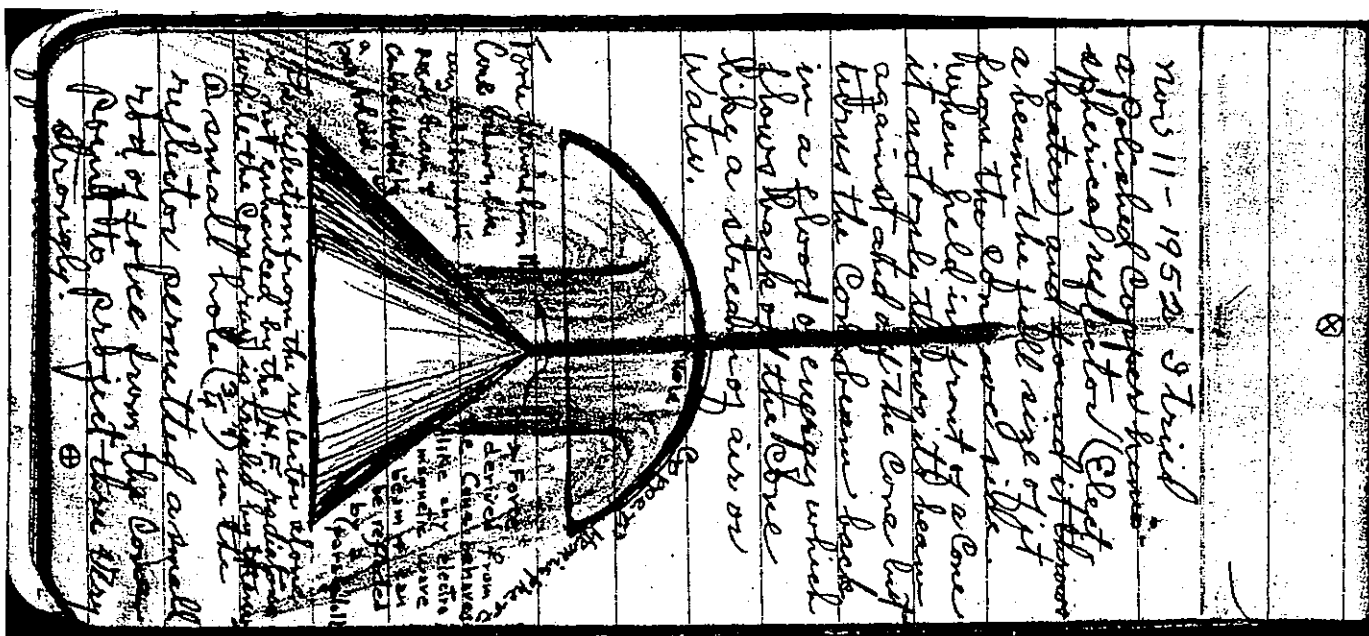 Nov 11 - 1952 I tried
a polished Copper hemi-
spherical reflector (Elect
heater) and found it throws
a beam the full size of it
from the side
When held in front of a Cone
it not only throws its beam
against of the Cone but
turns the Cone beam back
in a flood of energy which
flows back of the Cone
like a stream of air or
water.
hole
Copper
Hemisphere
Force derived from
Cone behaves like
any electro magnetic
wave beam
can be reflected by
a (parabola)
Force derived from
Cone behaves
like any electro
magnetic wave
beam can
be reflected
by a
(parabola)
The radiation from the reflector alone
is not enhanced by the H.F. radiation
while the Cone ray is
A small hole (3/4") in the
reflector permitted a small
rod of force from the Cone
point to project thru very
strongly.